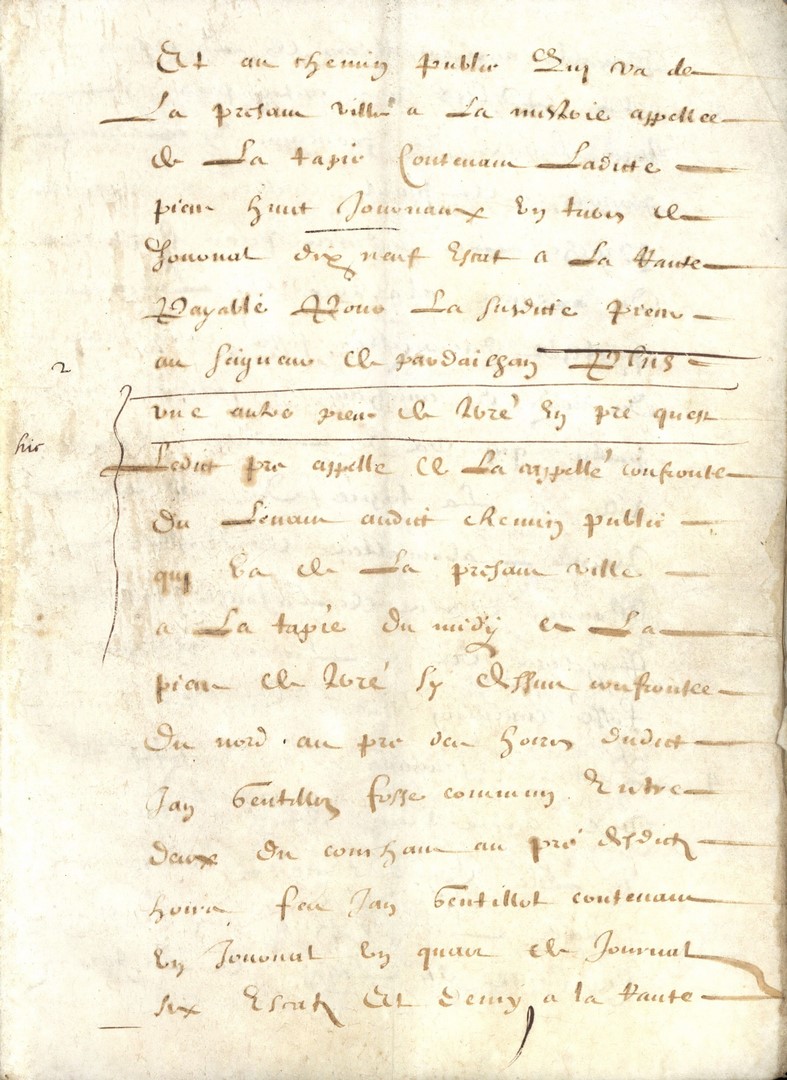 Et au chemin public Quy va de
La presant ville a La mesterie appellee
de La tapie Contenant Laditte
piece huict Jouonaux un tiers de
Jouonal dix neuf Escat a La Haute
Payable Pour La susditte piece
au seigneur de pardailhan Plus
2
une autre piece de terre En pré quest
hic
Ledict pre appelle de La cappelle confronte
Du Levant audict chemin public
quy va de La presant ville
a La tapie du midy a La
piece de terre sy dessus confrontee
Du nord au pre des hoirs dudict
Jan Gentillot fosse commun Entre
deux du couchant au pré desdicts
hoirs feu Jan Gentillot contenant
un Jouonal un quart de Journal
six Escatz Et demy a la Haute